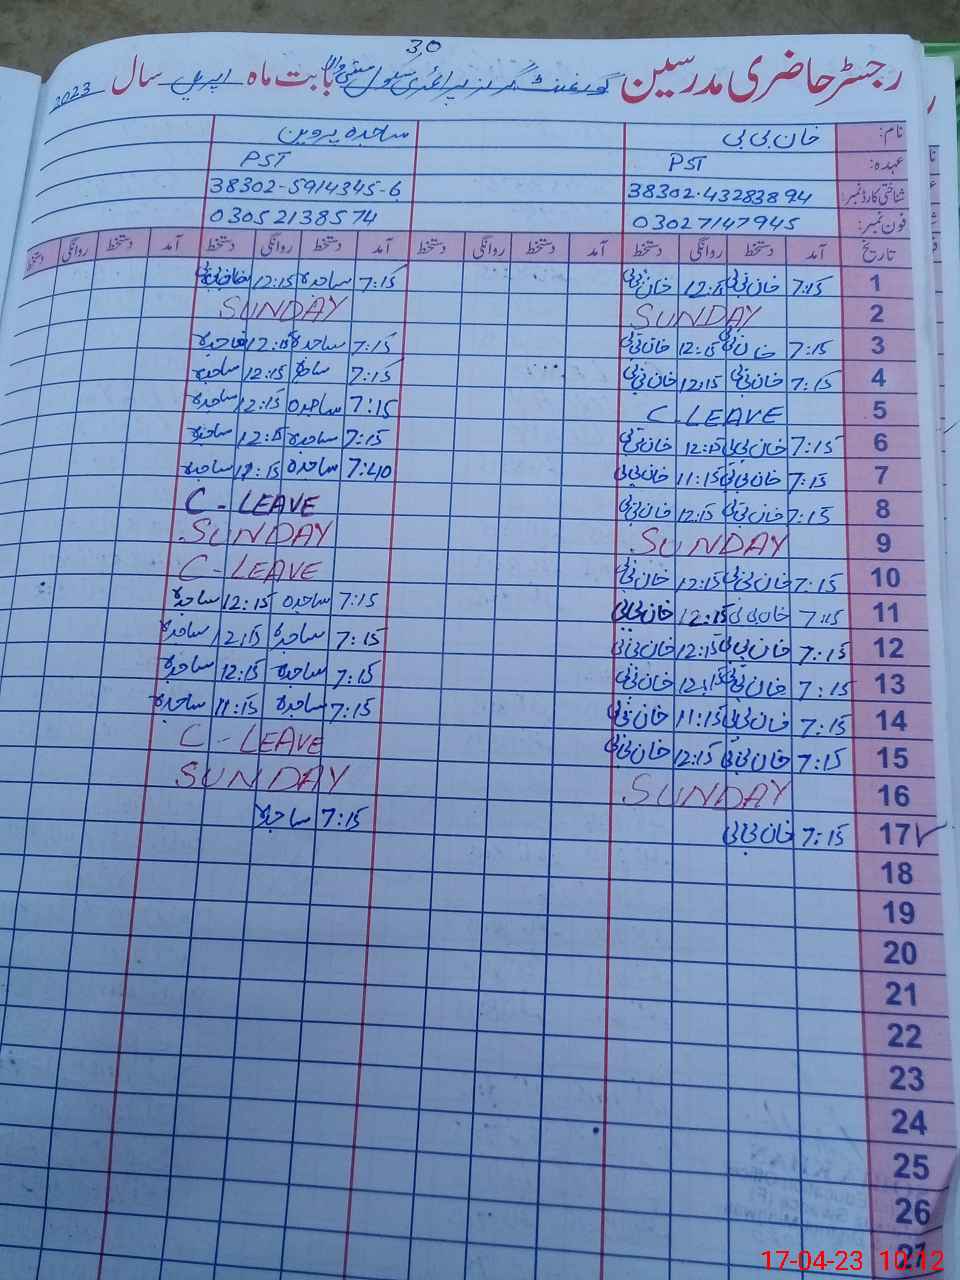 30
رجسٹر حاضری مدرسین گورنمنٹ گرلز پرائمری سکول بابت ماہ اپریل سال 2023
نام: خان بی بی ساجدہ پروین
عہدہ: PST PST
شناختی کارڈ نمبر: 38302-43283894 38302-5914345-6
فون نمبر: 03027147945 03052138574
تاریخ آمد دستخط روانگی دستخط آمد دستخط روانگی دستخط آمد دستخط روانگی دستخط آمد دستخط روانگی دستخط
1 7:15 خان بی بی 12:15 خان بی بی 7:15 ساجدہ 12:15
2 SUNDAY SUNDAY
3 7:15 خان بی بی 12:15 خان بی بی 7:15 ساجدہ 12:15 ساجدہ
4 7:15 خان بی بی 12:15 خان بی بی 7:15 ساجدہ 12:15 ساجدہ
5 C-LEAVE 7:15 ساجدہ 12:15 ساجدہ
6 7:15 خان بی بی 12:15 خان بی بی 7:15 ساجدہ 12:15 ساجدہ
7 7:15 خان بی بی 11:15 خان بی بی 7:40 ساجدہ 11:15 ساجدہ
8 7:15 خان بی بی 12:15 خان بی بی C-LEAVE
9 SUNDAY SUNDAY
10 7:15 خان بی بی 12:15 خان بی بی C-LEAVE
11 7:15 خان بی بی 12:15 خان بی بی 7:15 ساجدہ 12:15 ساجدہ
12 7:15 خان بی بی 12:15 خان بی بی 7:15 ساجدہ 12:15 ساجدہ
13 7:15 خان بی بی 12:15 خان بی بی 7:15 ساجدہ 12:15 ساجدہ
14 7:15 خان بی بی 11:15 خان بی بی 7:15 ساجدہ 11:15 ساجدہ
15 7:15 خان بی بی 12:15 خان بی بی C-LEAVE
16 SUNDAY SUNDAY
17 7:15 خان بی بی 7:15 ساجدہ
18
19
20
21
22
23
24
25
26
27
17-04-23 10:12